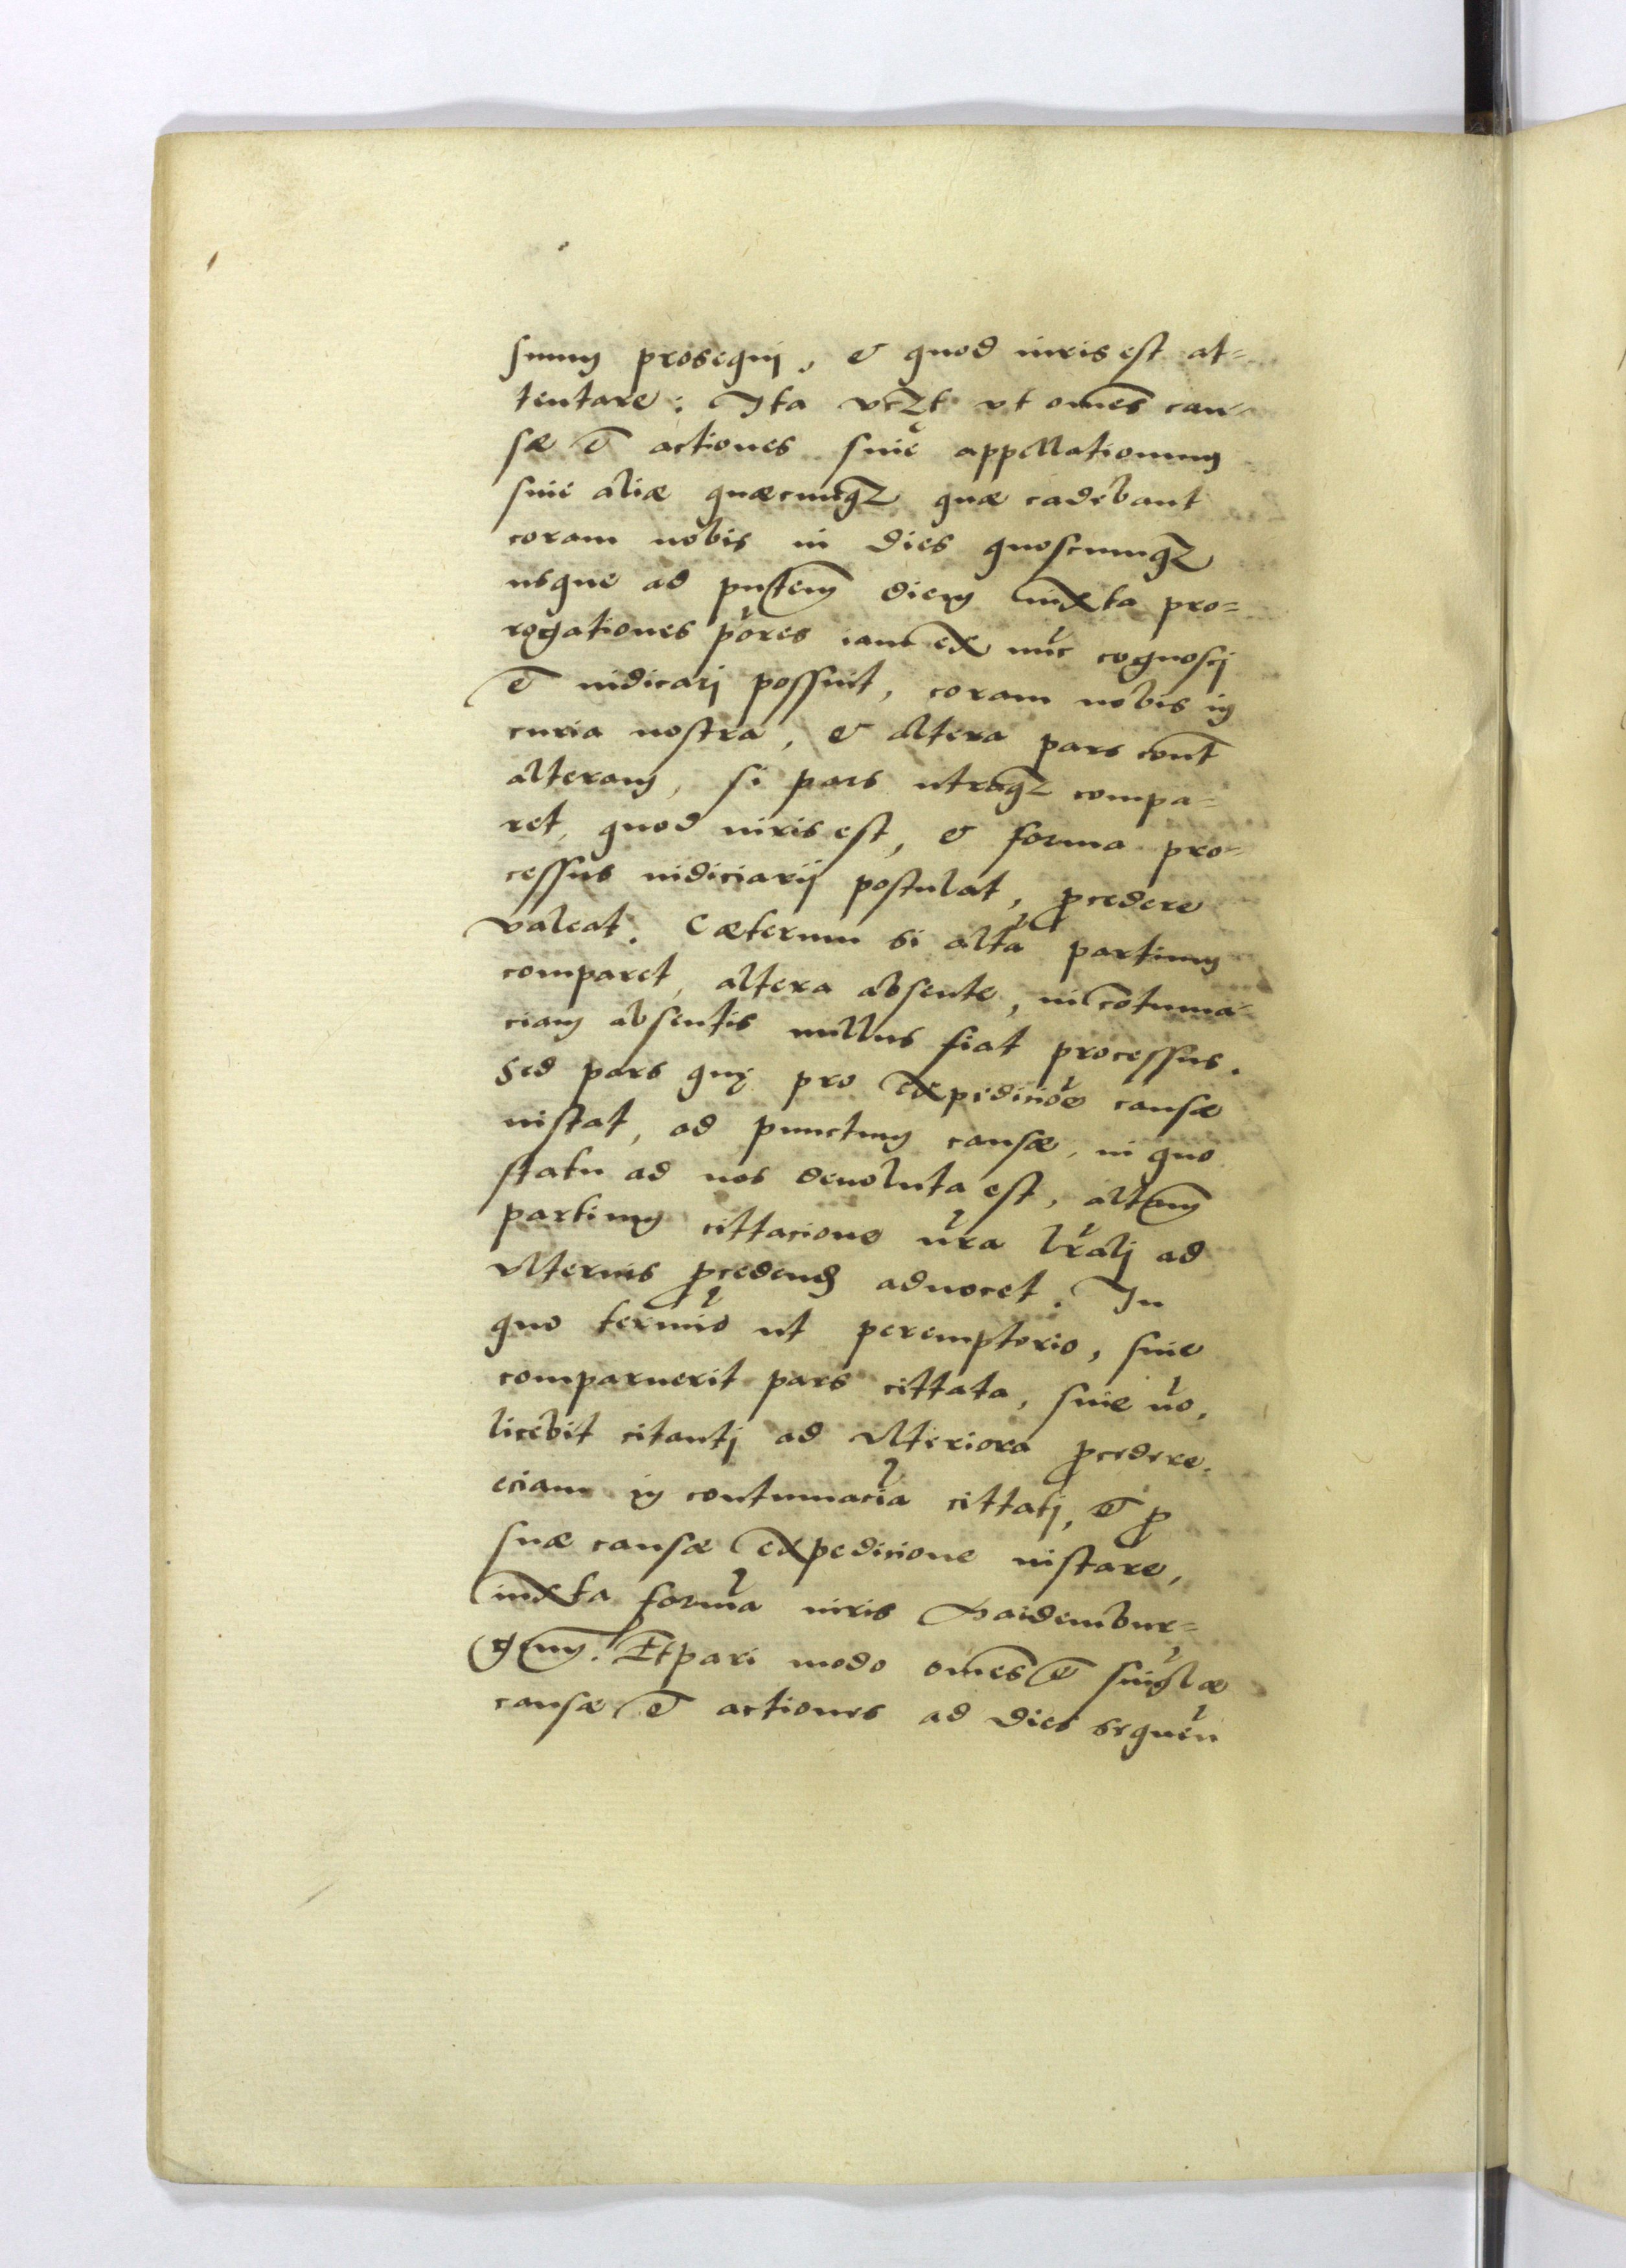 suum prosequi, & quod iuris est at=
tentare: Ita vczt vt om̄es cau-
sæ & actiones siue appellationum
siue aliæ quæcunqz quæ cadebant
coram nobis in dies quoscumqz
usque ad pn̄tem diem iuxta pro=
rogationes p̄ores iam ex nūc cognosci
& iudicari possint, coram nobis in
curia nostra, & altera pars cont̄
alteram, si pars utraqz compa=
ret, quod iuris est, & forma pro=
cessus iudiciarij postulat, p̄cedere
valeat. Cæterum si altā partium
comparet, altera absente, in cōtuma-
ciam absentis nullus fiat processus.
Sed pars quę pro expediciōe causæ
instat, ad punctum causæ, in quo
statu ad nos deuoluta est, altam̄
partium cittacione n̄ra lr̄ali ad
vlterius p̄cedend aduocet. In
quo termīo ut peremptorio, siue
comparuerit pars cittata, siue nō,
licebit citanti ad vlteriora p̄cedere,
eciam in contumaciā cittati, & p̄
suæ causæ expedicione instare,
iuxta formā iuris Maidembur=
gen̄. Et pari modo om̄es & singlæ
causæ & actiones ad dies sequēn